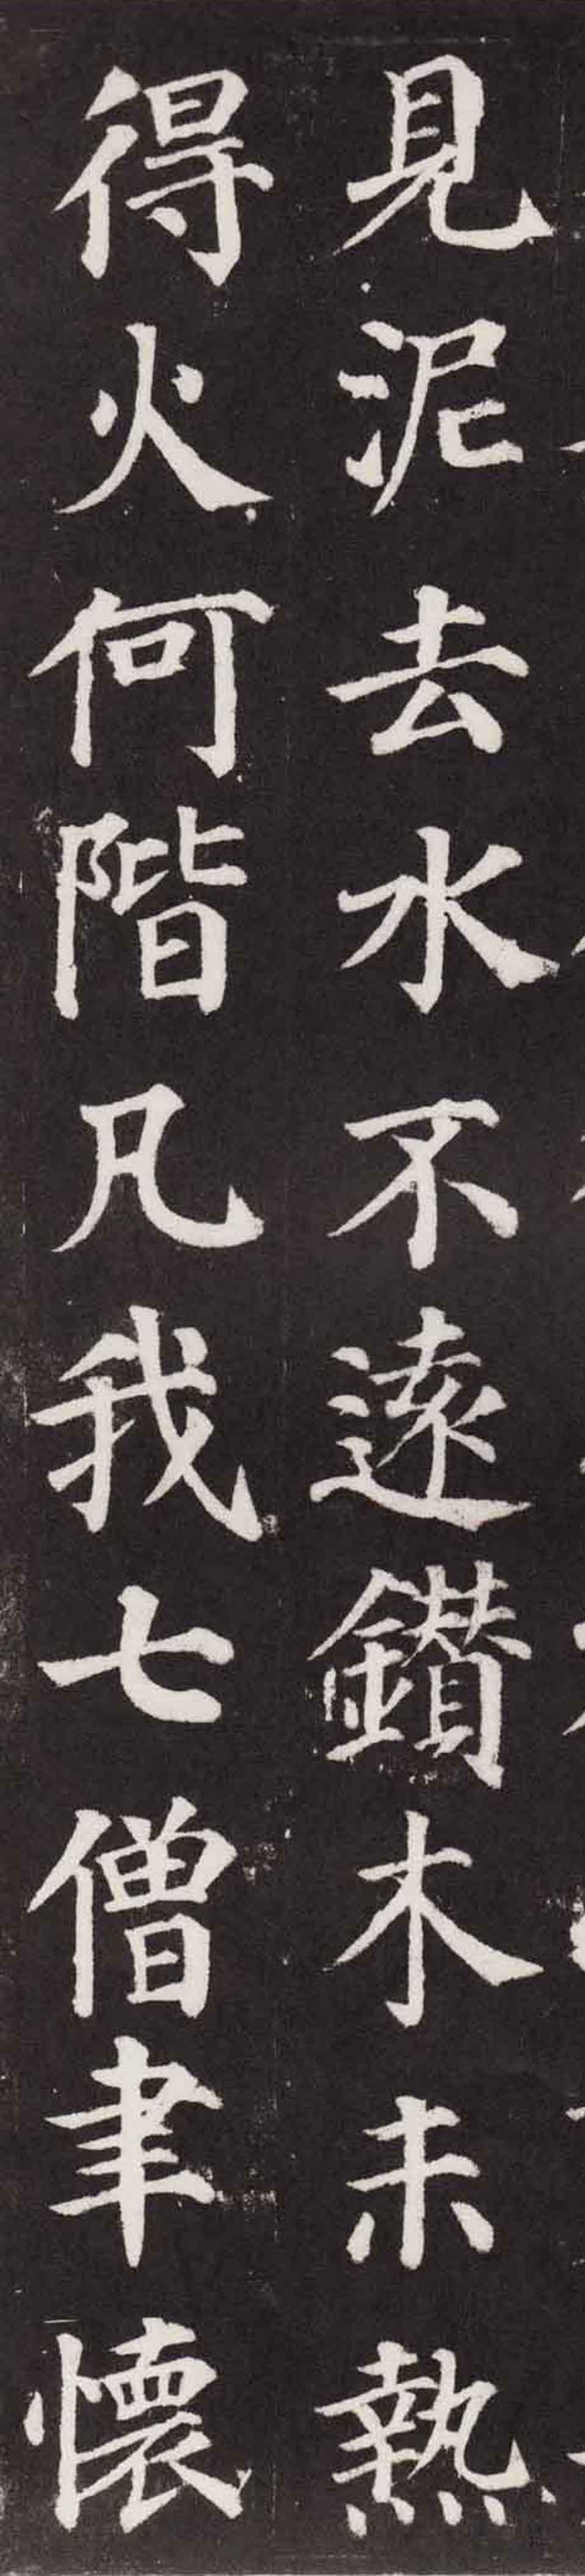 見泥去水不遠鑚木未熱
得火何階凡我七僧聿懷